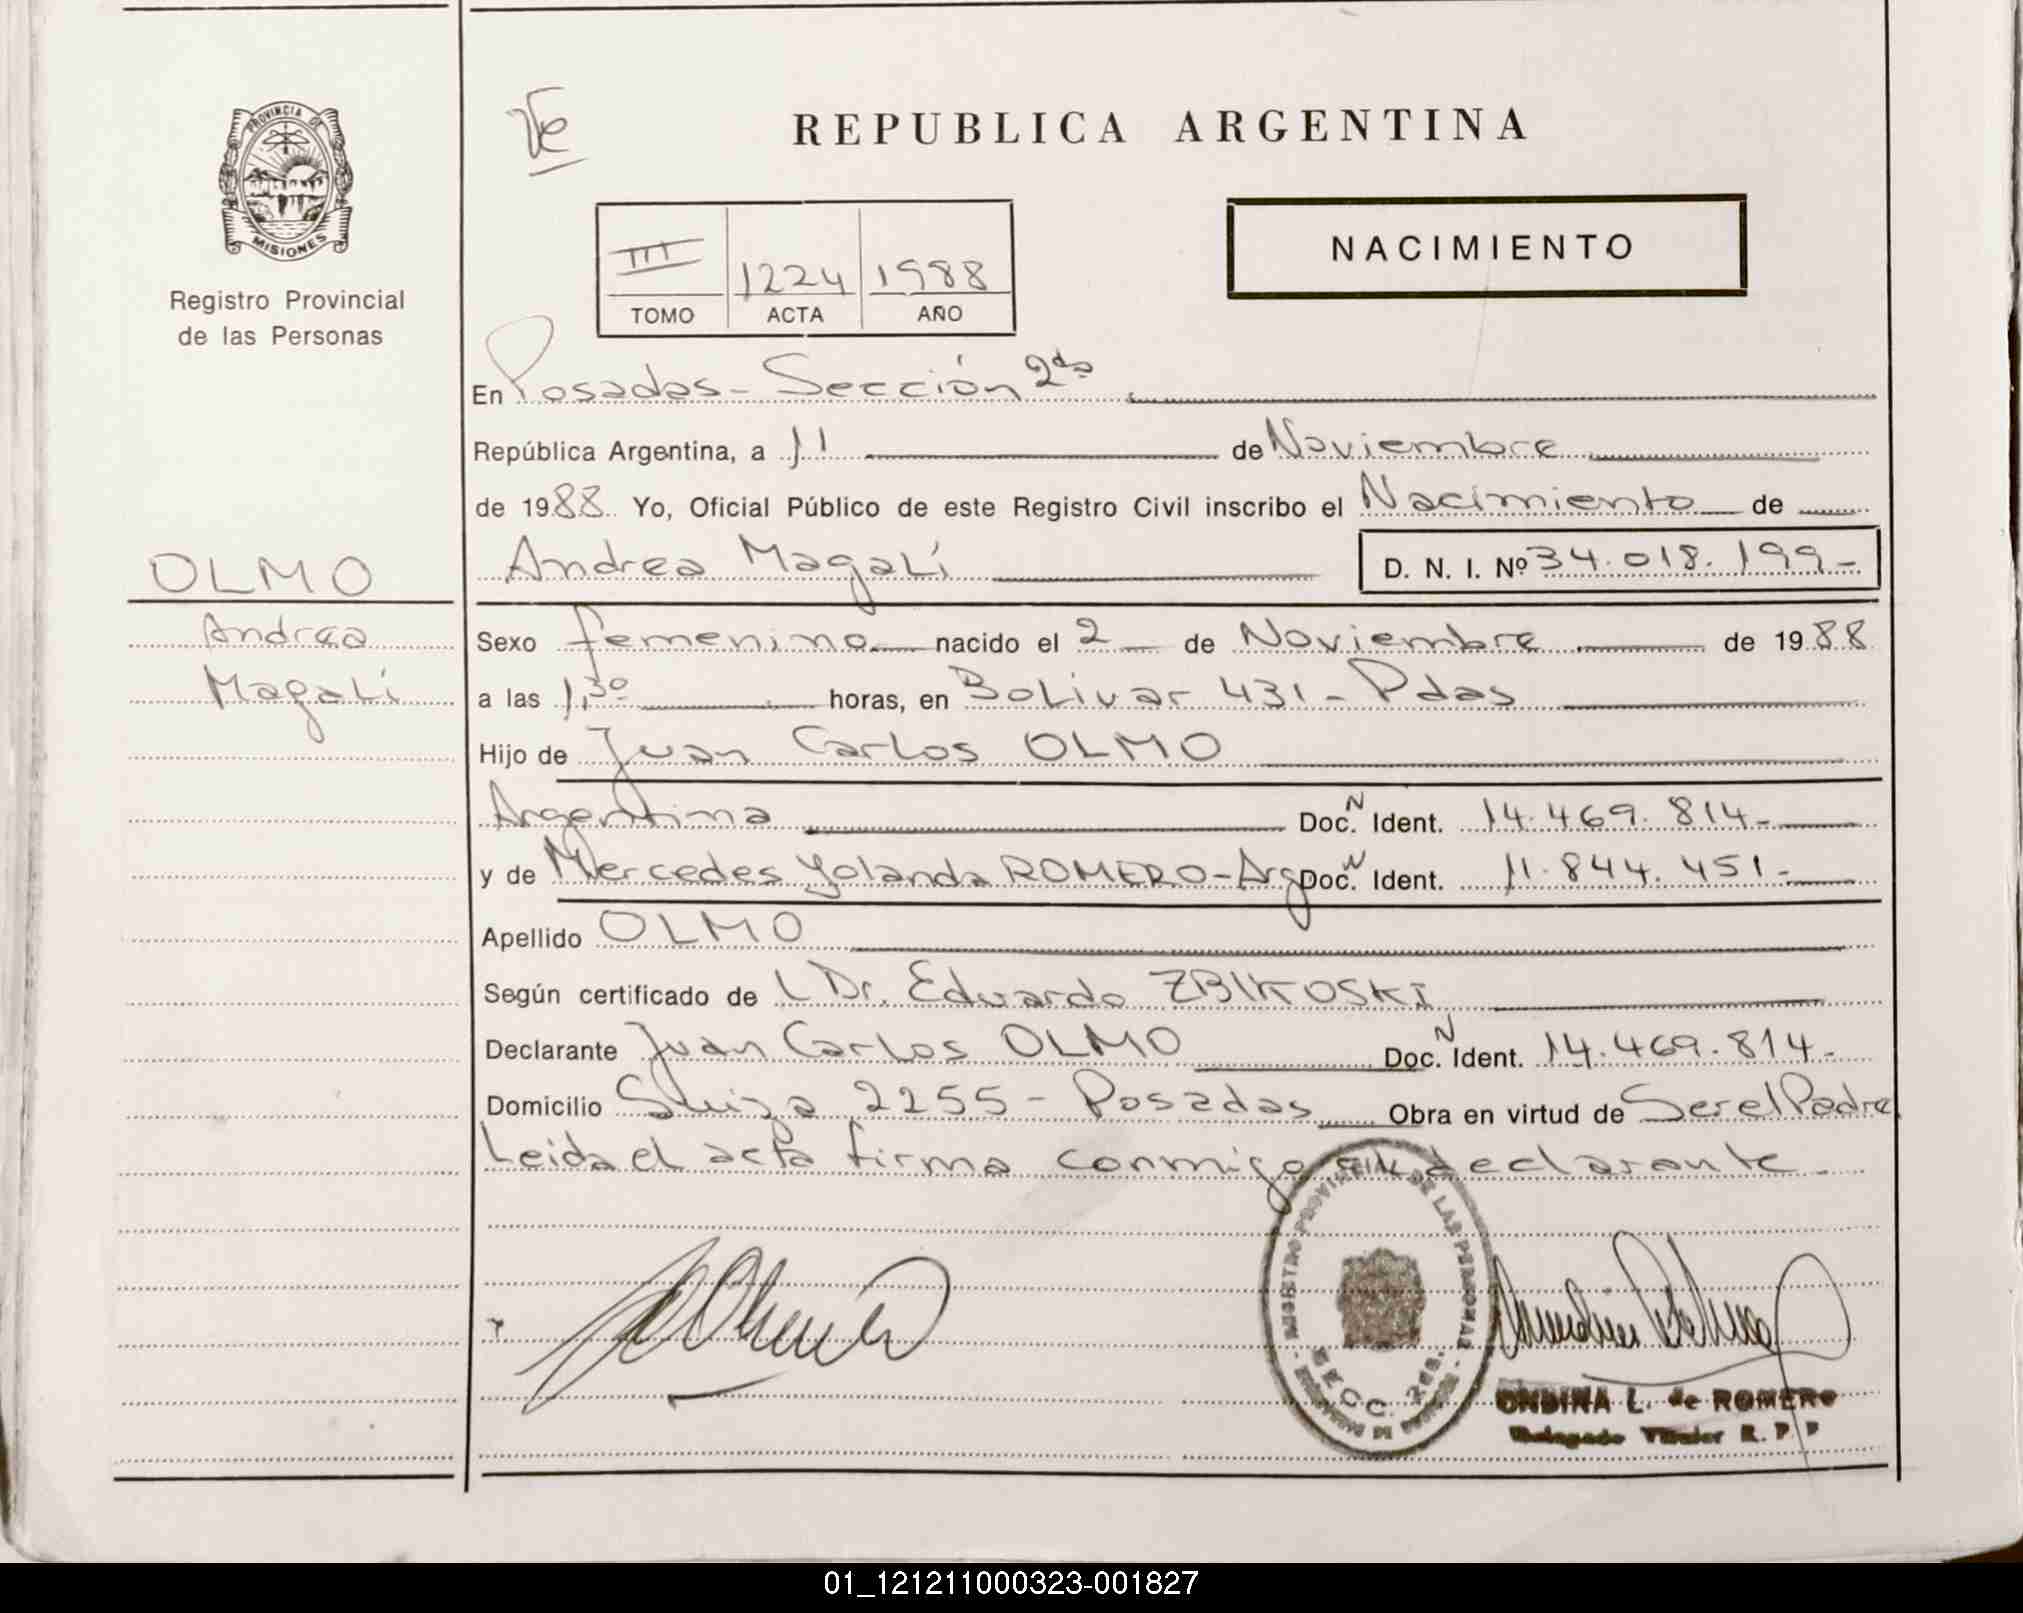 PROVINCIA DE
MISIONES
Registro Provincial
de las Personas
OLMO
Andrea
Magalí
REPUBLICA ARGENTINA
NACIMIENTO
III 1224 1988
TOMO ACTA AÑO
En Posadas - Sección 2da
República Argentina, a 11 de Noviembre
de 1988 Yo, Oficial Público de este Registro Civil inscribo el Nacimiento de
Andrea Magalí D. N. I. Nº 34.018.199-
Sexo femenino nacido el 2 de Noviembre de 1988
a las 1,30 horas, en Bolivar 431 - Pdas
Hijo de Juan Carlos OLMO
Argentina Doc. N Ident. 14.469.814-
y de Mercedes Yolanda ROMERO - Arg Doc. N Ident. 11.844.451-
Apellido OLMO
Según certificado de l Dr. Eduardo ZBIKOSKI
Declarante Juan Carlos OLMO Doc. N Ident. 14.469.814-
Domicilio Suiza 2255 - Posadas Obra en virtud de Ser el Padre
Leida el acta firma conmigo el declarante
REGISTRO PROVINCIAL DE LAS PERSONAS
SECC. 2da.
ONDINA L. de ROMERO
Delegado Titular R. P. P
01_121211000323-001827